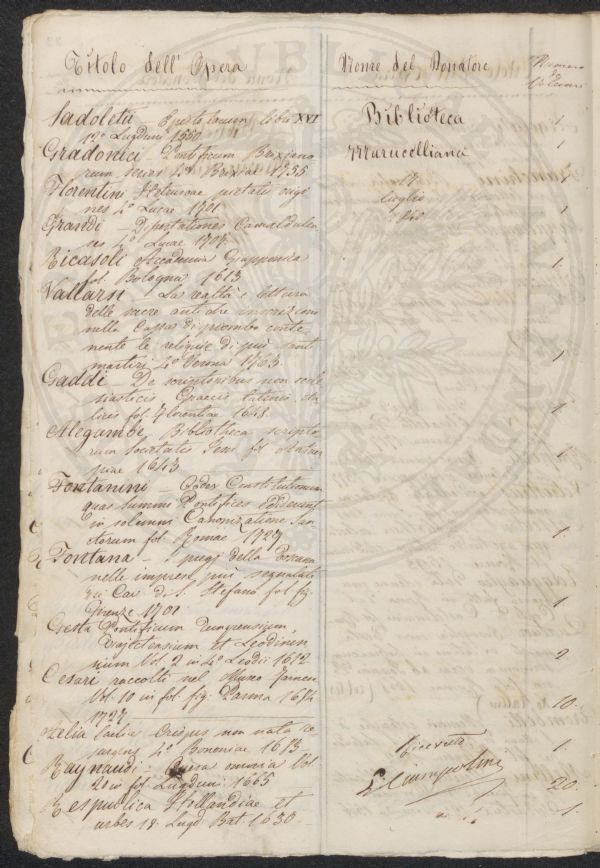 Titolo dell' Opera
Nome del Donatore
Numero
de
Volumi
Sadoleti — Epistolarum libri XVI
12º Lugduni 1550
Gradonici — Pontificum Brixiano
rum series 4º Brixiae 1755
Florentini Hetruscae pietatis origi
nes 4º Lucae 1701
Grandi — Dissertationes Camaldulen
ses 4º Lucae 1707
Ricasoli Accademia Giapponica
fol. Bologna 1613
Vallarsi — La realtà e lettura
delle sacre antiche inscrizioni
nella Cassa di piombo conte
nente le reliquie di più santi
martiri 4º Verona 1763.
Gaddi — De scriptoribus non eccle
siasticis Graecis latinis Ita
licis fol. Florentiae 1648
Alegambe Bibliotheca scripto
rum Societatis Jesu fol Antuer
piae 1643
Fontanini — Codex Constitutionum
quas summi Pontifices ediderunt
in solemni Canonizatione San
ctorum fol Romae 1729
Fontana — I pregi della Toscana
nelle imprese più segnalate
dei Cav. di S. Stefano fol fig
Firenze 1701
Gesta Pontificum Tungrensium,
Trajectensium et Leodinen
sium Vol 2 in 4º Leodii 1612
Cesari raccolti nel Museo Farnese
Vol. 10 in fol. fig. Parma 1694
1727
Aelia Laelia Crispis non nata re
surgens 4º Bononiae 1683
Raynaudi Opera omnia Vol
20 in fol Lugduni 1665
Respublica Hollandiae et
urbes 18. Lugd. Bat. 1630
Biblioteca
Marucelliana
17
Luglio
1840
Ricevuta
1
1
1
1
1
1
1
1
1
2
10.
1.
20.
1.